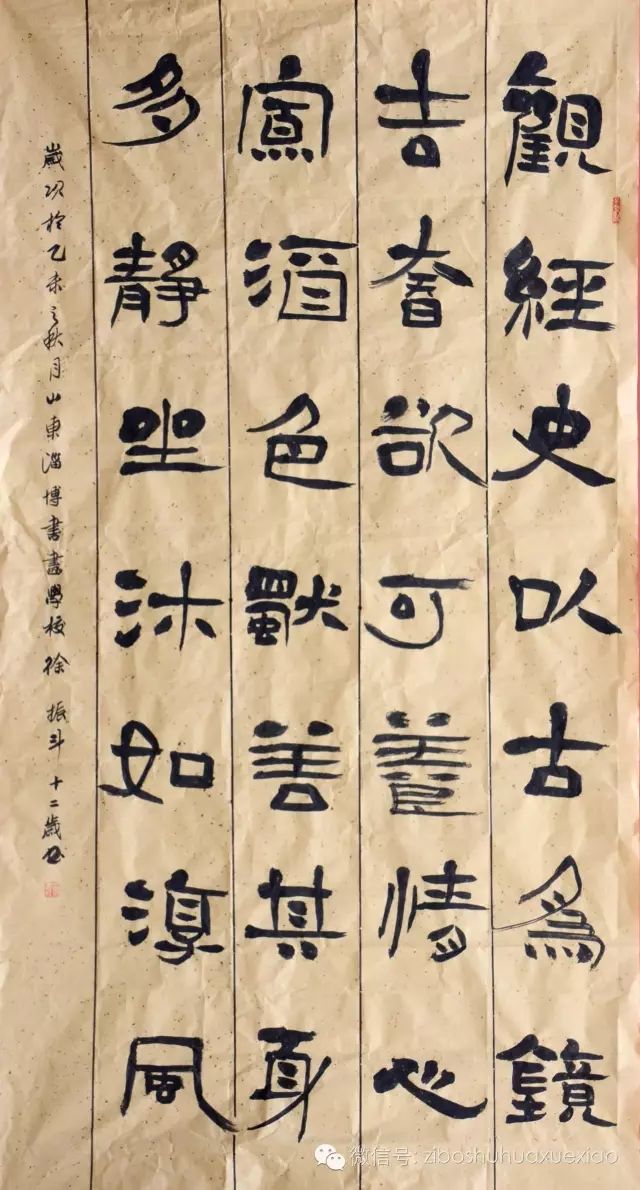 觀經史以古為鏡
去奢欲可養情心
寡酒色獨善其身
多靜坐沐如淳風
歲次於乙未之秋月山東淄博書畫學校徐振斗十二歲书
微信号: ziboshuhuaxuexiao